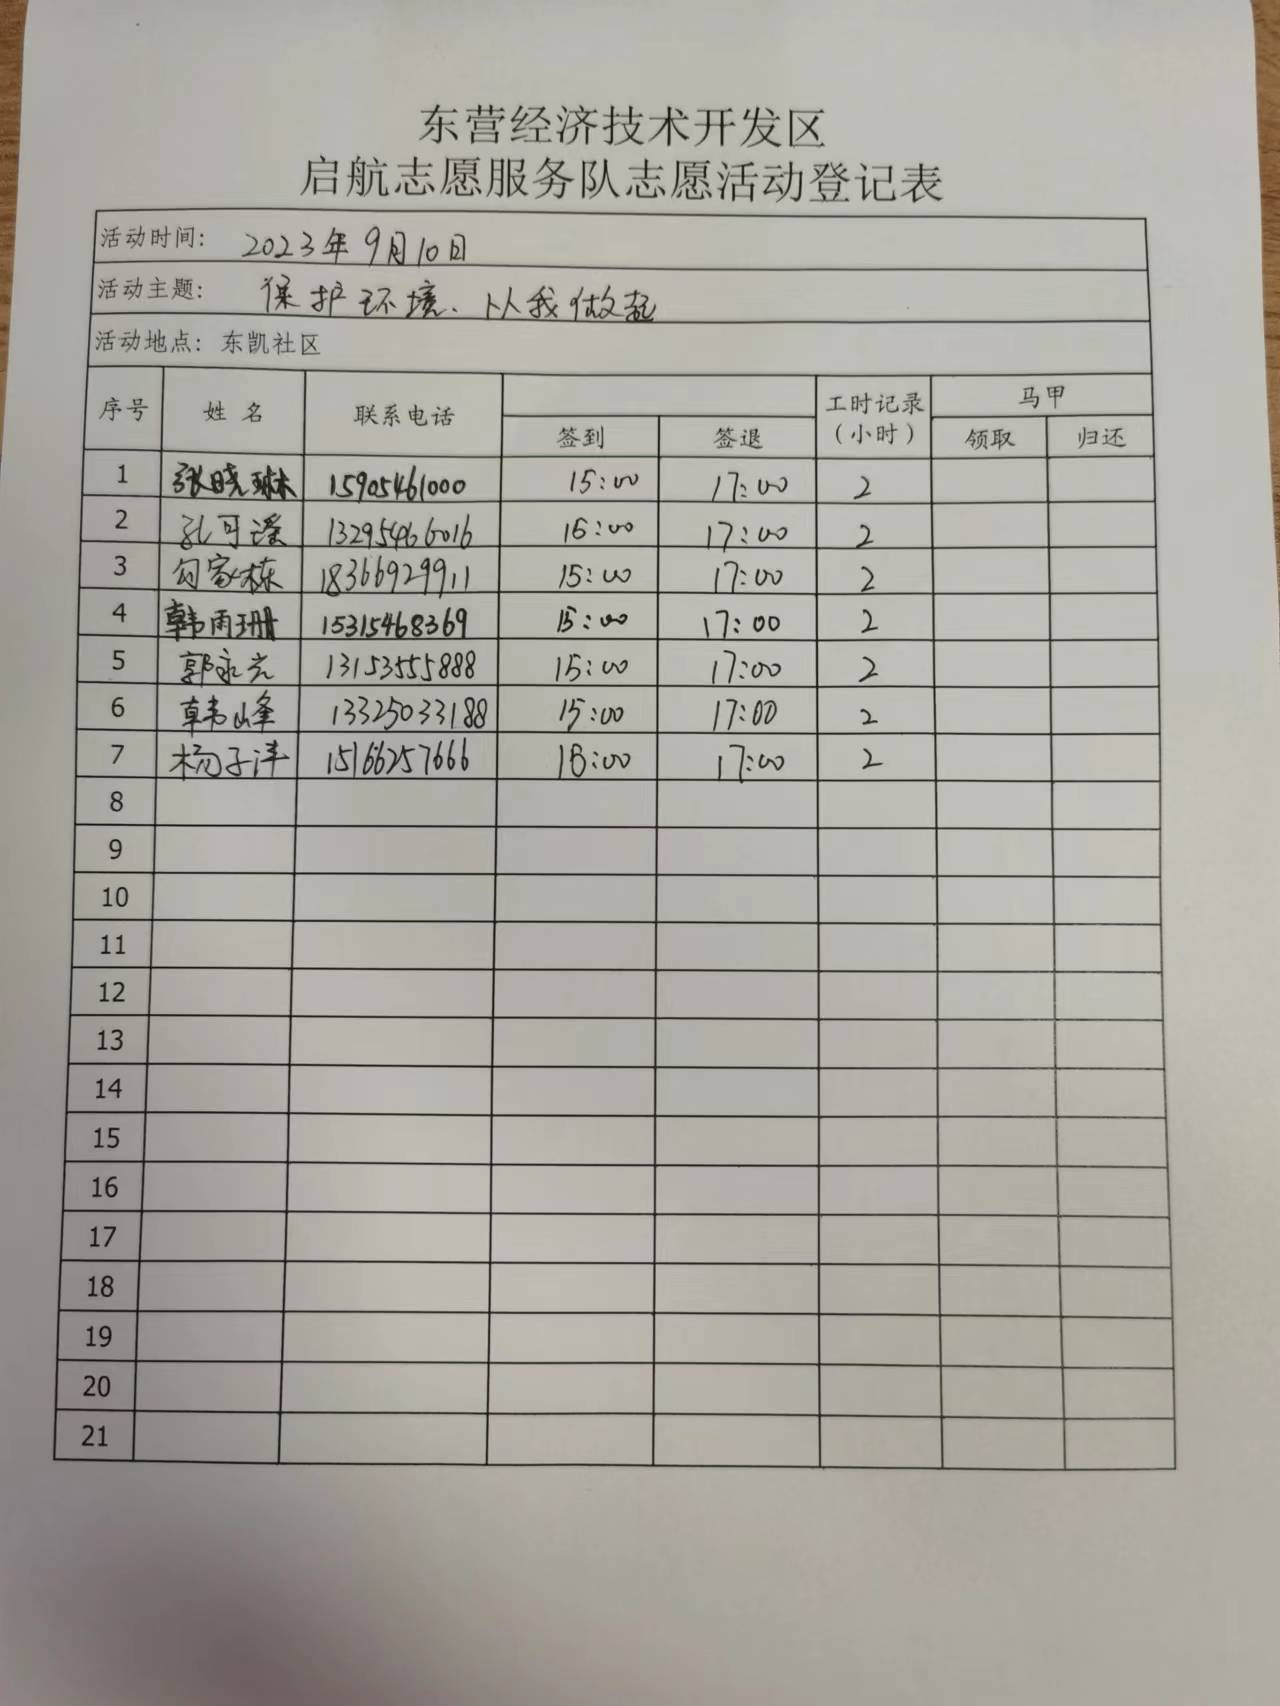 东营经济技术开发区
启航志愿服务队志愿活动登记表
活动时间： 2023年9月10日
活动主题： 保护环境、从我做起
活动地点：东凯社区
序号 姓 名 联系电话 签到 签退 工时记录（小时） 马甲 领取 归还
1 张晓琳 15905461000 15:00 17:00 2
2 孔可瑶 13295466016 15:00 17:00 2
3 勾家栋 18366929911 15:00 17:00 2
4 韩雨珊 15315468369 15:00 17:00 2
5 郭永亮 13153555888 15:00 17:00 2
6 韩峰 13325033188 15:00 17:00 2
7 杨子洋 15166257666 15:00 17:00 2
8
9
10
11
12
13
14
15
16
17
18
19
20
21